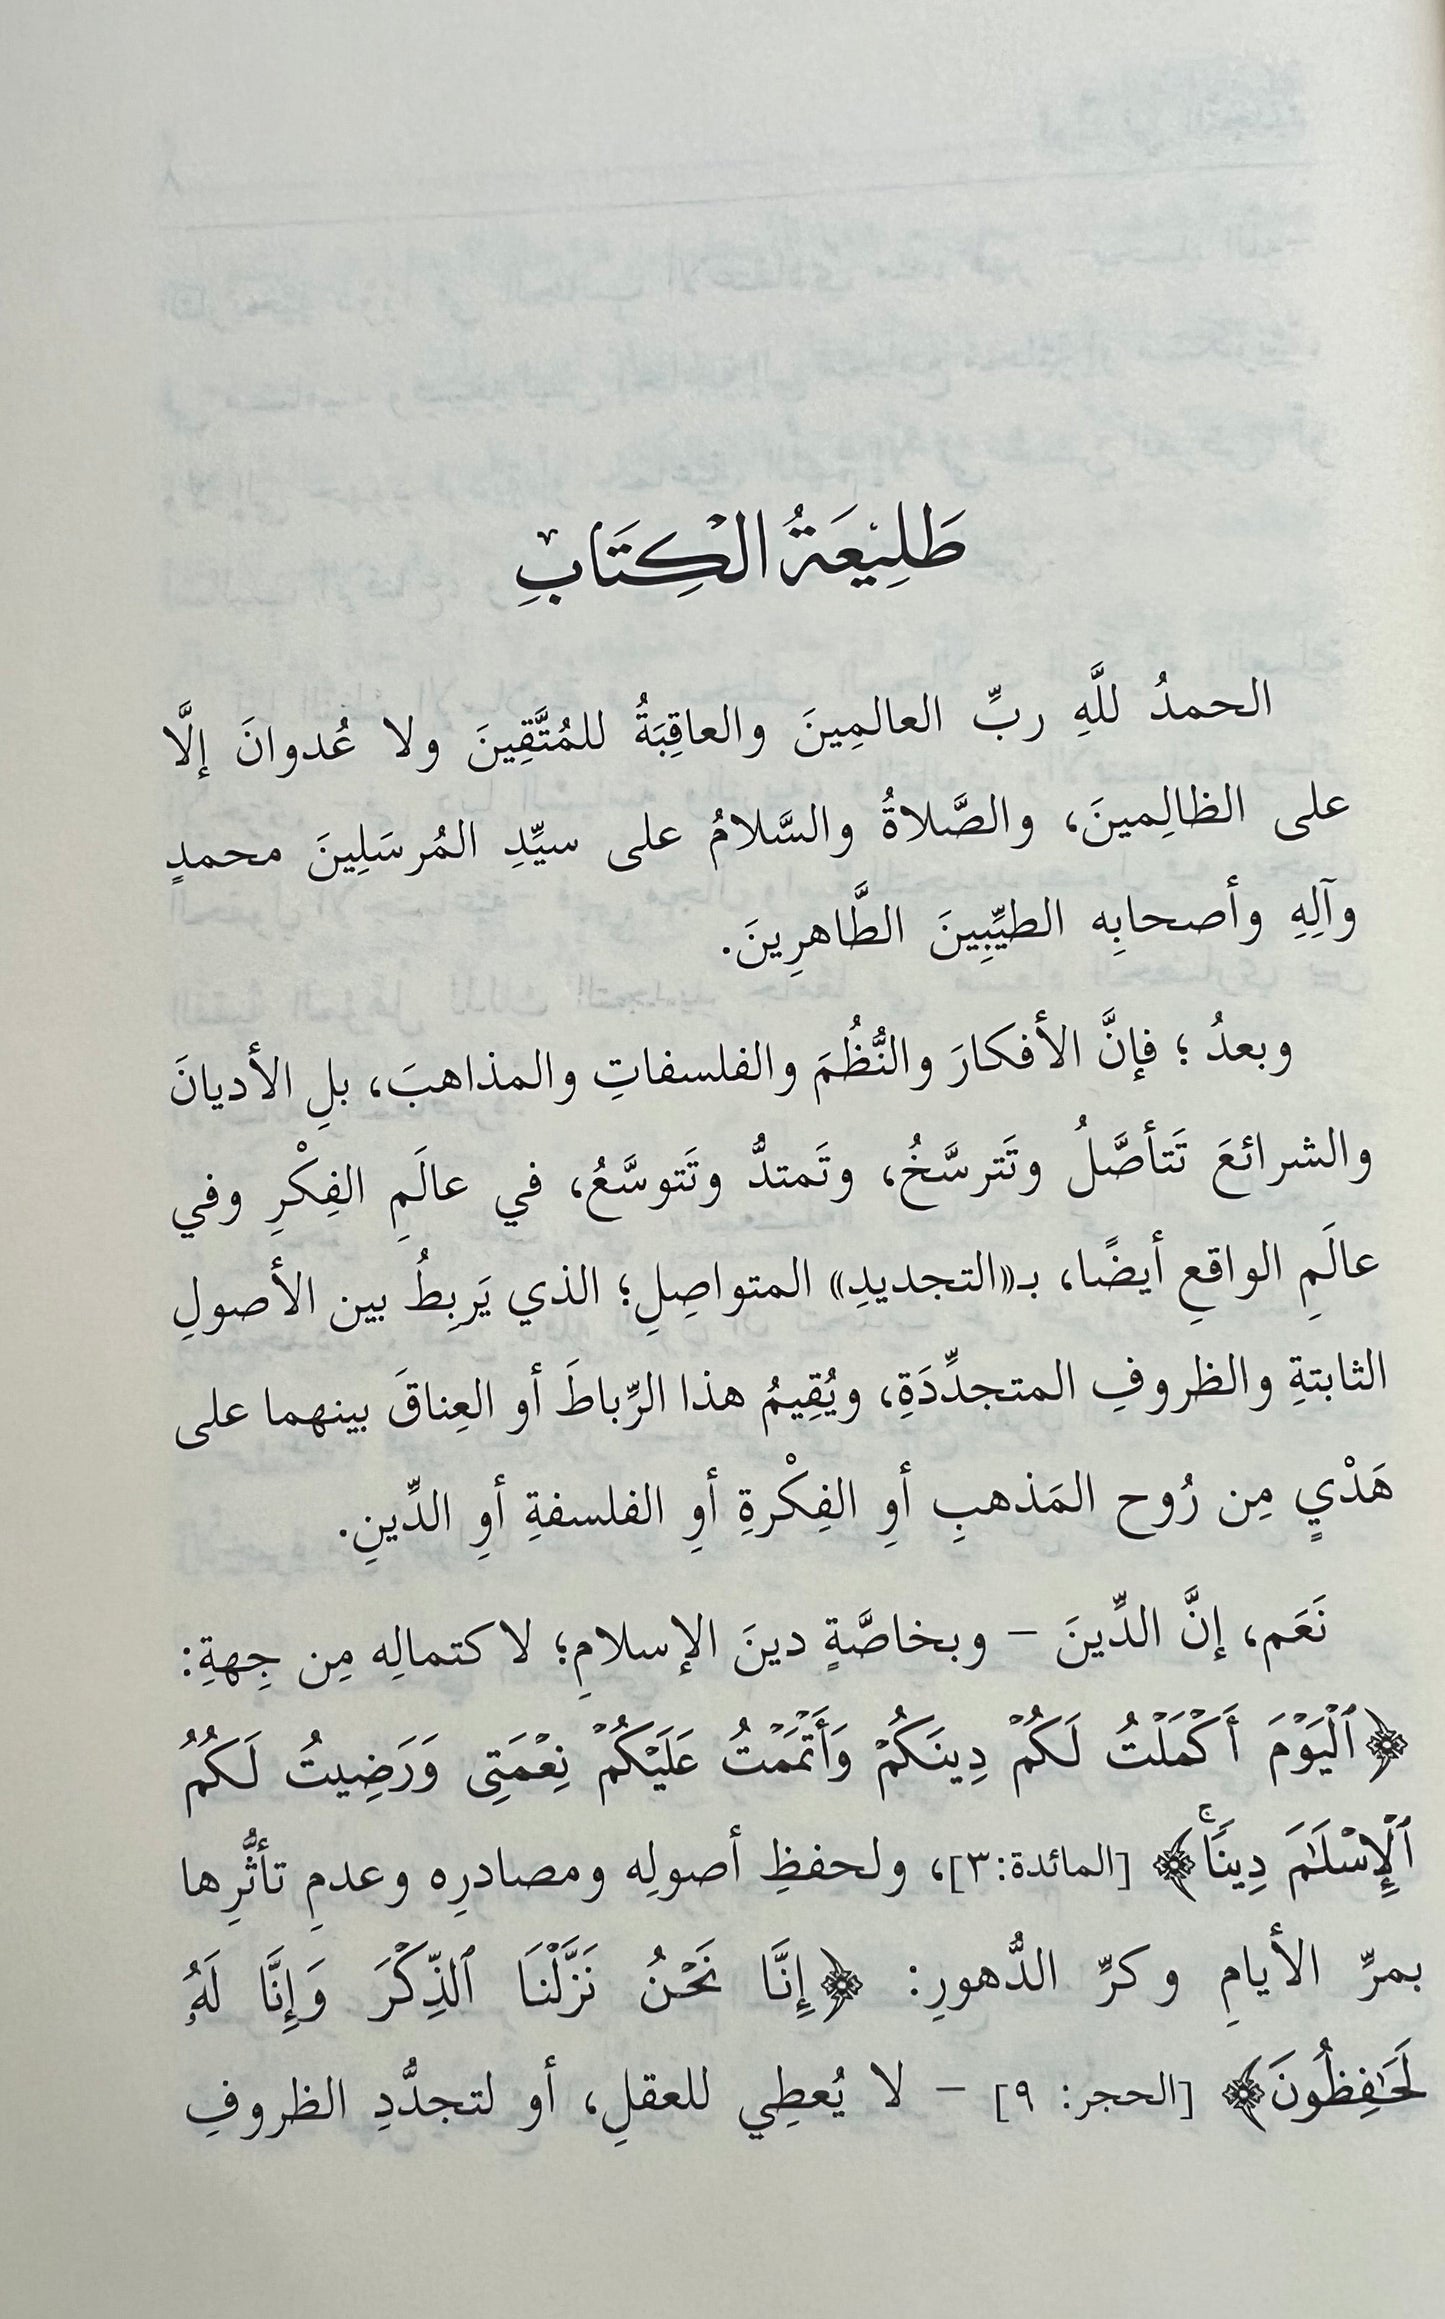 طَلِيعَةُ الْكِتَابِ
الحمدُ للَّهِ ربِّ العالمِينَ والعاقِبَةُ للمُتَّقِينَ ولا عُدوانَ إلَّا
على الظالِمينَ، والصَّلاةُ والسَّلامُ على سيِّدِ المُرسَلِينَ محمدٍ
وآلِهِ وأصحابِه الطيِّبِينَ الطَّاهرِينَ.
وبعدُ ؛ فإنَّ الأفكارَ والنُّظُمَ والفلسفاتِ والمذاهبَ، بلِ الأديانَ
والشرائعَ تَتأصَّلُ وتَترسَّخُ، وتَمتدُّ وتَتوسَّعُ، في عالَمِ الفِكْرِ وفي
عالَمِ الواقعِ أيضًا، بـ«التجديدِ» المتواصِلِ؛ الذي يَربِطُ بين الأصولِ
الثابتةِ والظروفِ المتجدِّدَةِ، ويُقِيمُ هذا الرِّباطَ أو العِناقَ بينهما على
هَدْيٍ مِن رُوح المَذهبِ أوِ الفِكْرةِ أوِ الفلسفةِ أوِ الدِّينِ.
نَعَم، إنَّ الدِّينَ – وبخاصَّةٍ دينَ الإسلامِ؛ لاكتمالِه مِن جِهةِ:
﴿ٱلْيَوْمَ أَكْمَلْتُ لَكُمْ دِينَكُمْ وَأَتْمَمْتُ عَلَيْكُمْ نِعْمَتِى وَرَضِيتُ لَكُمُ
ٱلْإِسْلَٰمَ دِينًاۚ﴾ [المائدة:٣]، ولحفظِ أصولِه ومصادرِه وعدمِ تأثُّرِها
بمرِّ الأيامِ وكرِّ الدُّهورِ: ﴿إِنَّا نَحْنُ نَزَّلْنَا ٱلذِّكْرَ وَإِنَّا لَهُۥ
لَحَٰفِظُونَ﴾ [الحجر: ٩] – لا يُعطِي للعقلِ، أو لتجدُّدِ الظروفِ